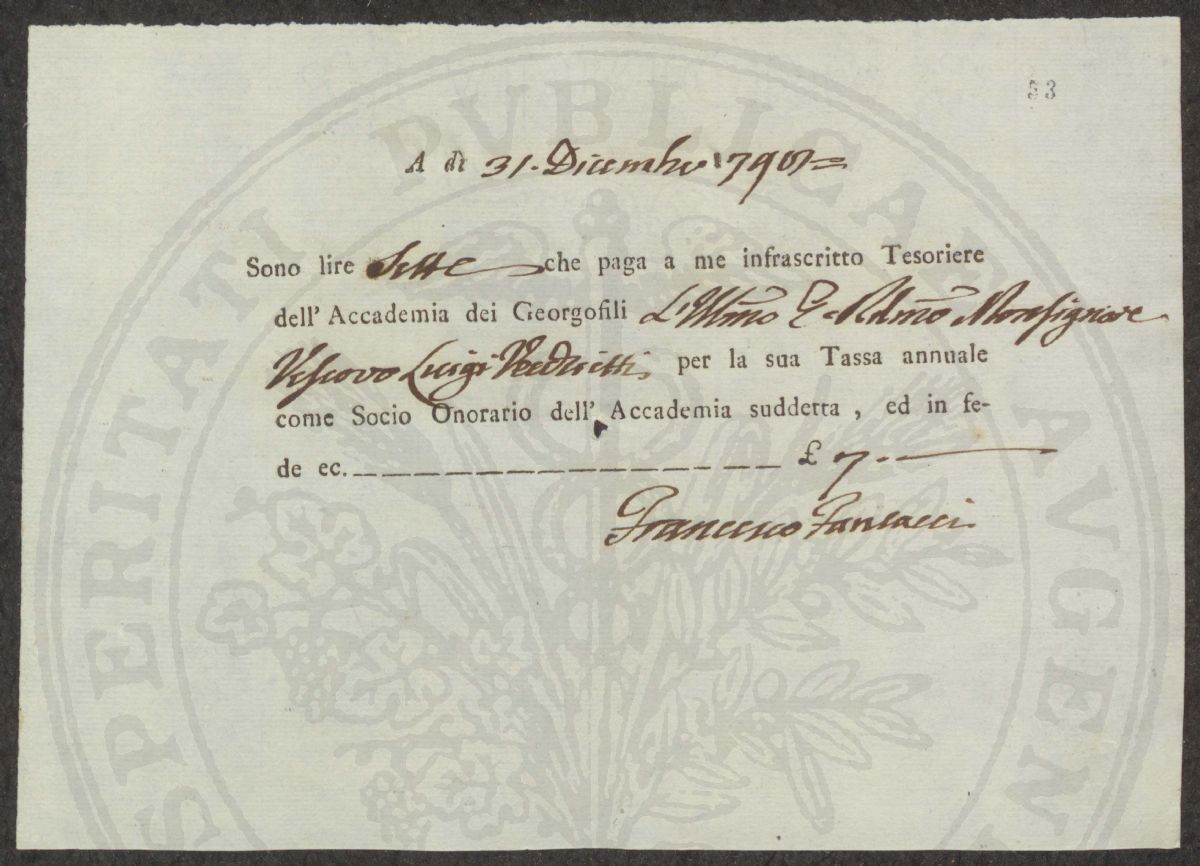 A dì 31. Dicembre
Sono lire Sette che paga a me infrascritto Tesoriere
dell' Accademia dei Georgofili L'Illmo E Rdmo Monsignore
Vescovo Luigi per la sua Tassa annuale
come Socio Onorario dell' Accademia suddetta , ed in fe-
de ec. £ 7.
Francesco
SPERITATI PVBLICAE AVGEN